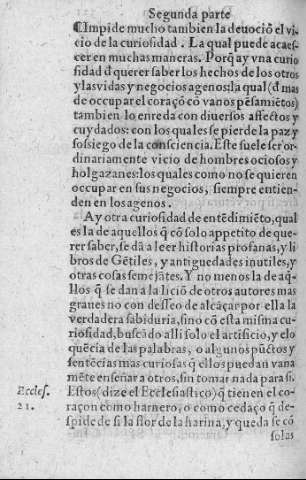 Segunda parte
¶Impide mucho tambien la deuociõ el vi-
cio de la curiosidad. La qual puede acaes-
cer en muchas maneras. Porq̃ ay vna curio
sidad d̃ querer saber los hechos de los otros
y las vidas y negocios agenos: la qual (d̃ mas
de occupar el coraçõ cõ vanos pẽsamiẽtos)
tambien lo enreda con diuersos affectos y
cuydados: con los quales se pierde la paz y
sossiego de la consciencia. Este suele ser or-
dinariamente vicio de hombres ociosos y
holgazanes: los quales como no se quieren
occupar en sus negocios, siempre entien-
den en los agenos.
Ay otra curiosidad de entẽdimiẽto, qual
es la de aquellos q̃ cõ solo appetito de que-
rer saber, se dã a leer historias profanas, y li
bros de Gẽtiles, y antiguedades inutiles, y
otras cosas semejãtes. Y no menos la de aq̃-
llos q̃ se dan a la liciõ de otros autores mas
graues no con desseo de alcãçar por ella la
verdadera sabiduria, sino cõ esta misma cu-
riosidad, buscãdo alli solo el artificio, y elo
quẽcia de las palabras, o algunos pũctos y
sentẽcias mas curiosas q̃ ellos puedan vana
mẽte enseñar a otros, sin tomar nada para si.
Eccles. Estos (dize el Ecclesiastico) q̃ tienen el co-
21. raçon como harnero, o como cedaço q̃ de-
spide de si la flor de la harina, y queda se cõ
solas